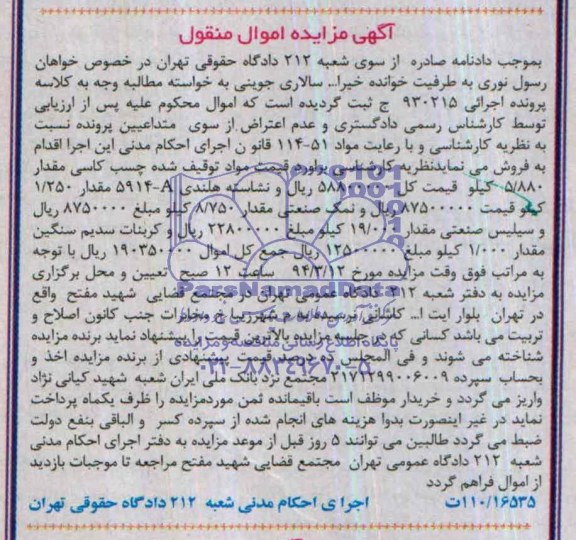 آگهی مزایده اموال منقول
بموجب دادنامه صادره از سوی شعبه ۲۱۲ دادگاه حقوقی تهران در خصوص خواهان
رسول نوری به طرفیت خوانده خیرا... سالاری جوینی به خواسته مطالبه وجه به کلاسه
پرونده اجرائی ۹۳۰۲۱۵ ج ثبت گردیده است که اموال محکوم علیه پس از ارزیابی
توسط کارشناس رسمی دادگستری و عدم اعتراض از سوی متداعیین پرونده نسبت
به نظریه کارشناسی و با رعایت مواد ۵۱-۱۱۴ قانون اجرای احکام مدنی این اجرا اقدام
به فروش می نماید نظریه کارشناسی برآورد قیمت مواد توقیف شده چسب کاسی مقدار
۵/۸۸۰ کیلو قیمت کل ریال و نشاسته هلندی ۵۹۱۴-A مقدار ۱/۲۵۰
کیلو قیمت ۸۷۵۰۰۰۰۰ ریال و نمک صنعتی مقدار ۸/۷۵۰ کیلو مبلغ ۸۷۵۰۰۰۰ ریال
و سیلیس صنعتی مقدار ۱۹/۰۰۰ کیلو مبلغ ۲۲۸۰۰۰۰۰ ریال و کربنات سدیم سنگین
مقدار ۱/۰۰۰ کیلو مبلغ ۱۲۵۰۰۰۰۰ ریال جمع کل اموال ۱۹۰۳۵۰۰۰۰ ریال با توجه
به مراتب فوق وقت مزایده مورخ ۹۴/۳/۱۲ ساعت ۱۲ صبح تعیین و محل برگزاری
مزایده به دفتر شعبه ۲۱۲ دادگاه عمومی تهران در مجتمع قضایی شهید مفتح واقع
در تهران بلوار آیت ا... کاشانی نرسیده به م شهرزیبا خ مخابرات جنب کانون اصلاح و
تربیت می باشد کسانی که در جلسه مزایده بالاترین قیمت را پیشنهاد نماید برنده مزایده
شناخته می شوند و فی المجلس ده درصد قیمت پیشنهادی از برنده مزایده اخذ و
بحساب سپرده ۲۱۷۲۲۹۹۰۰۶۰۰۹ مجتمع نزد بانک ملی ایران شعبه شهید کیانی نژاد
واریز می گردد و خریدار موظف است باقیمانده ثمن موردمزایده را ظرف یکماه پرداخت
نماید در غیر اینصورت بدوا هزینه های انجام شده از سپرده کسر و الباقی بنفع دولت
ضبط می گردد طالبین می توانند ۵ روز قبل از موعد مزایده به دفتر اجرای احکام مدنی
شعبه ۲۱۲ دادگاه عمومی تهران مجتمع قضایی شهید مفتح مراجعه تا موجبات بازدید
از اموال فراهم گردد
۱۱۰/۱۶۵۳۵ت اجرای احکام مدنی شعبه ۲۱۲ دادگاه حقوقی تهران
ParsNamadData
پایگاه اطلاع رسانی مناقصه و مزایده
۰۲۱-۸۸۳۴۹۶۷۰-۵